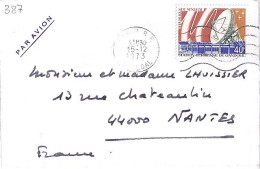 387
PAR AVION
15-12
1973
40F
Monsieur et madame LHUISSIER
13 rue Chateaulin
44000 NANTES
France